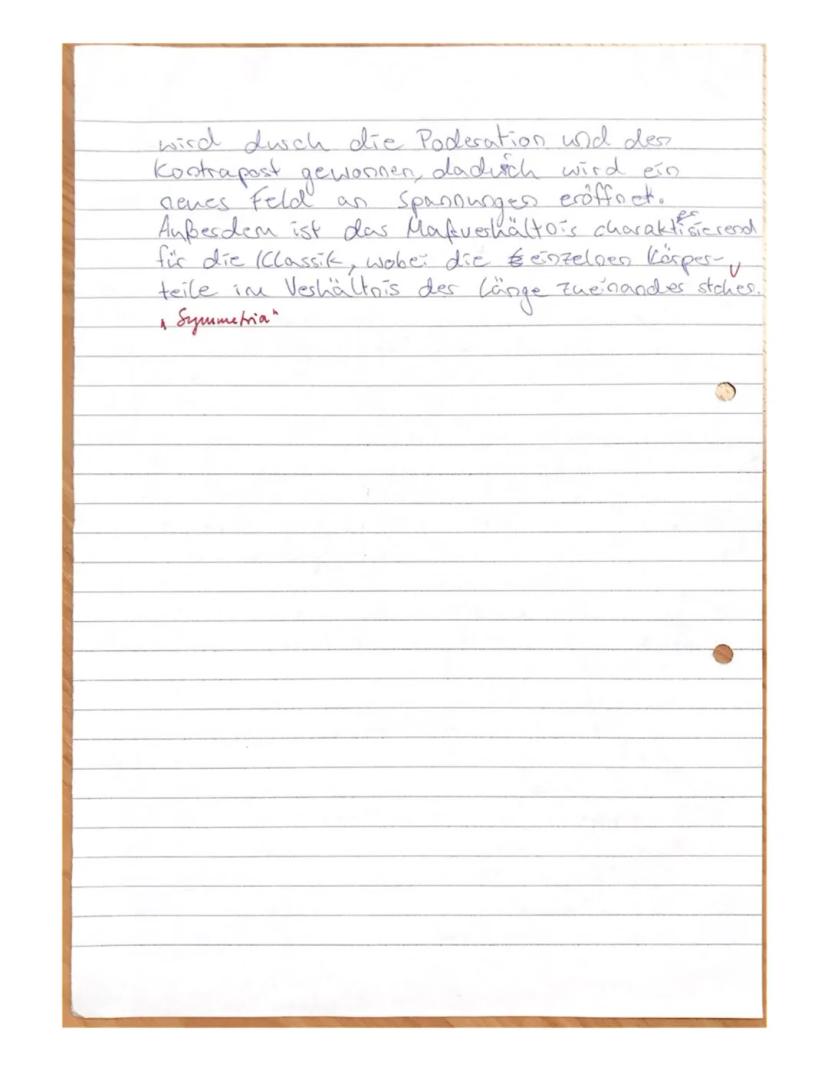 wird durch die Poderation und der
Kontrapost gewonnen, dadurch wird ein
neues Feld an Spannungen eröffnet.
Außerdem ist das Maßverhältnis charakterisierend
für die Klassik, wobei die einzelnen Körper-
teile im Verhältnis der Länge zueinander stehen.
"Symmetria"